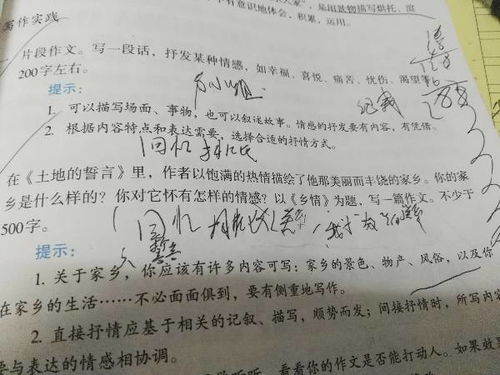 有意识地体会,积累,运用。
写作实践
片段作文。写一段话,抒发某种情感,如幸福、喜悦、痛苦、忧伤、渴望等
200字左右。
提示:
1. 可以描写场面、事物,也可以叙述故事。情感的抒发要有内容、有凭借。
2. 根据内容特点和表达需要,选择合适的抒情方式。
回忆
在《土地的誓言》里,作者以饱满的热情描绘了他那美丽而丰饶的家乡。你的家
乡是什么样的?你对它怀有怎样的情感?以《乡情》为题,写一篇作文。不少于
500字。
回忆
提示:
1. 关于家乡,你应该有许多内容可写:家乡的景色、物产、风俗,以及你
在家乡的生活……不必面面俱到,要有侧重地写作。
2. 直接抒情应基于相关的记叙、描写,顺势而发;间接抒情时,所写内容
要与表达的情感相协调。
看看你的作文是否能打动人。如果效